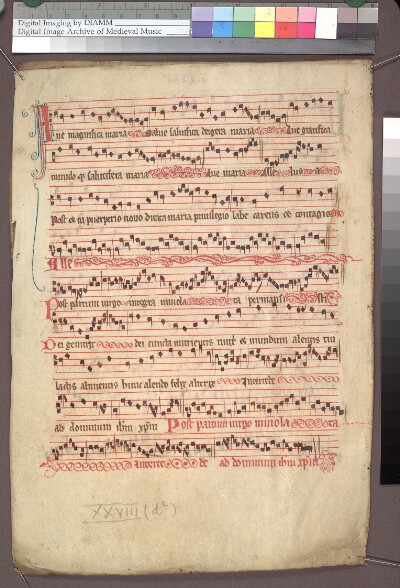 Digital Imaging by DIAMM
Digital Image Archive of Medieval Music
Aue magnifica maria Salue salutifica deigera maria Aue gratifica
mundo salutifera maria Aue maria Alle lu a
Post et in puerperio nouo dicata maria priuilegio labe carens et contagio
Alle
Post partum uirgo integra inuiola ta permansi sti
Dei genitrix dei cuncta nutrientis nutrix et mundum alentis tui
lactis alimentis hunc alendo felix altrix Intercede
ad dominum ihm xpm Post partum uirgo inuiola ta
Interce de ad dominum ihm xpm
XXVIII (dº)